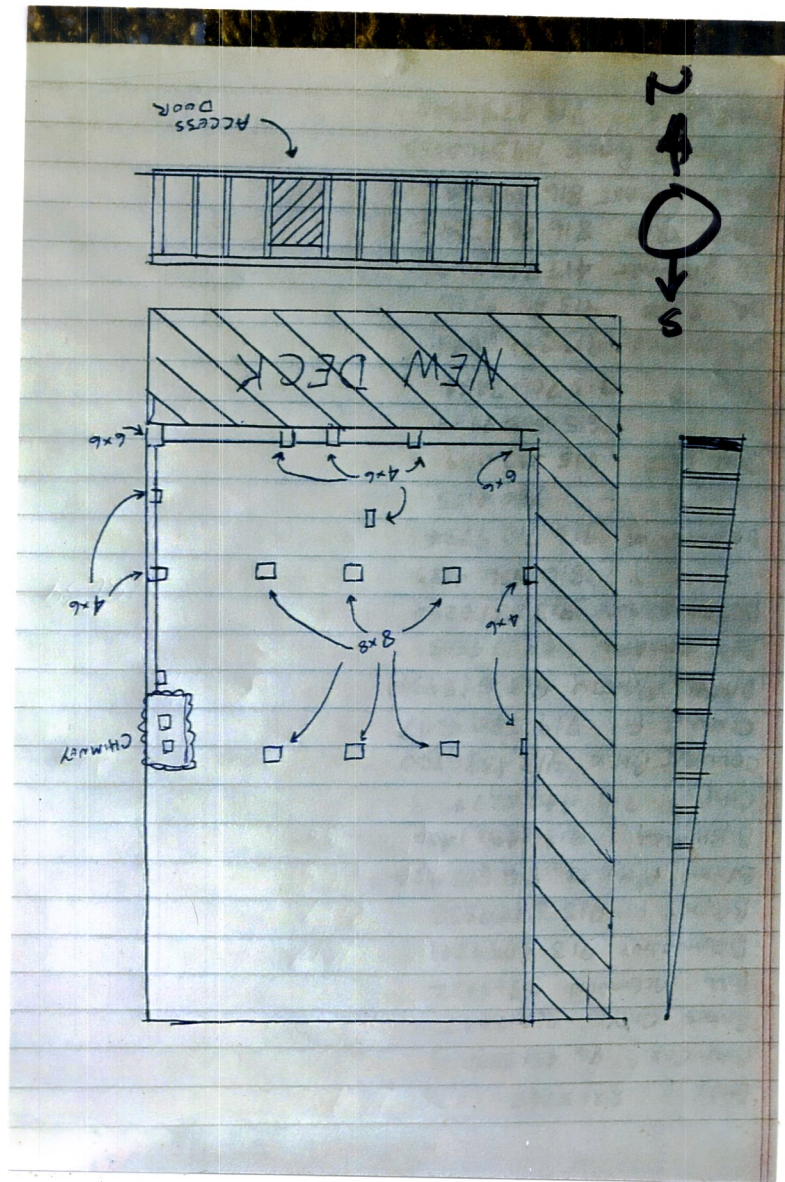 N
ACCESS
DOOR
S
NEW DECK
6x6
4x6
6x6
4x6
4x6
8x8
CHIMNEY